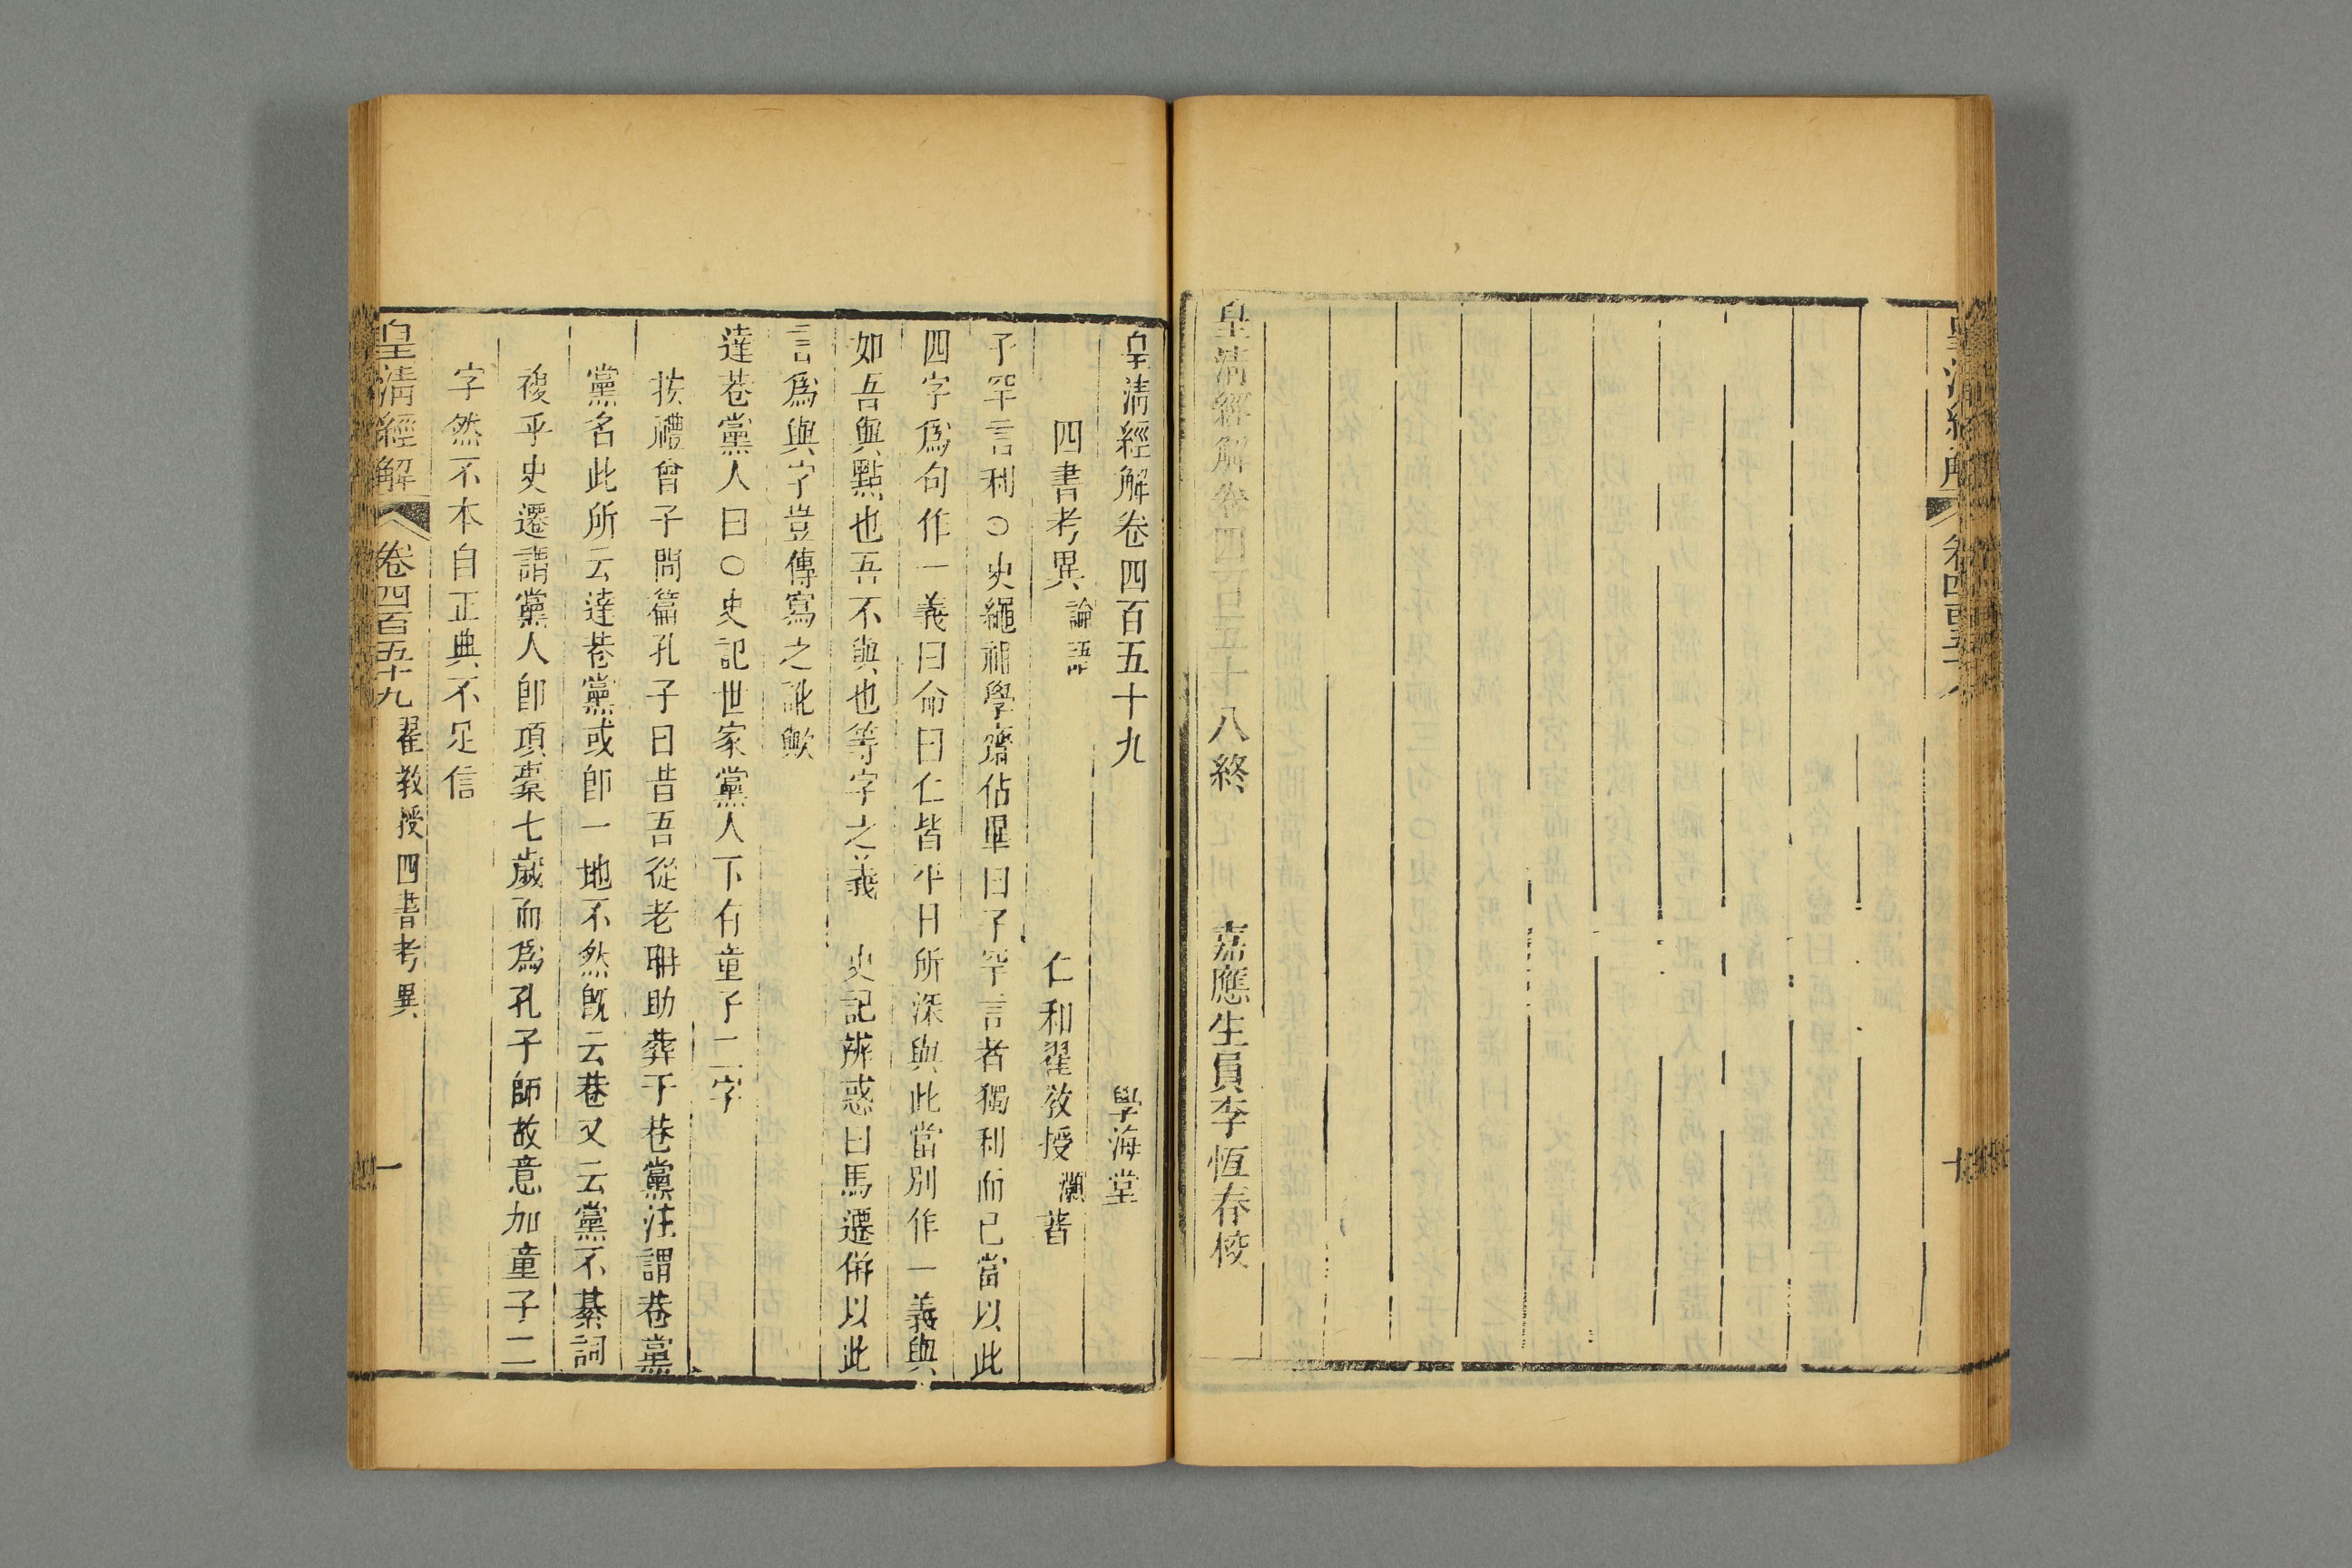 皇清經解
卷四百五十八
皇清經解卷四百五十八終 嘉應生員李恆春校
皇清經解卷四百五十九 學海堂
四書考異論語 仁和翟教授灝著
子罕言利○史繩祖學齋佔畢曰子罕言者獨利而已當以此
四字爲句作一義曰命曰仁皆平日所深與此當別作一義與
如吾與點也吾不與也等字之義 史記辨惑曰馬遷併以此
言爲與字豈傳寫之訛歟
達巷黨人曰○史記世家黨人下有童子二字
按禮曾子問篇孔子曰昔吾從老耼助葬于巷黨注謂巷黨
黨名此所云達巷黨或卽一地不然旣云巷又云黨不綦詞
複乎史遷謂黨人卽項橐七歲而爲孔子師故意加童子二
字然不本自正典不足信
皇清經解
卷四百五十九
翟教授四書考異
一